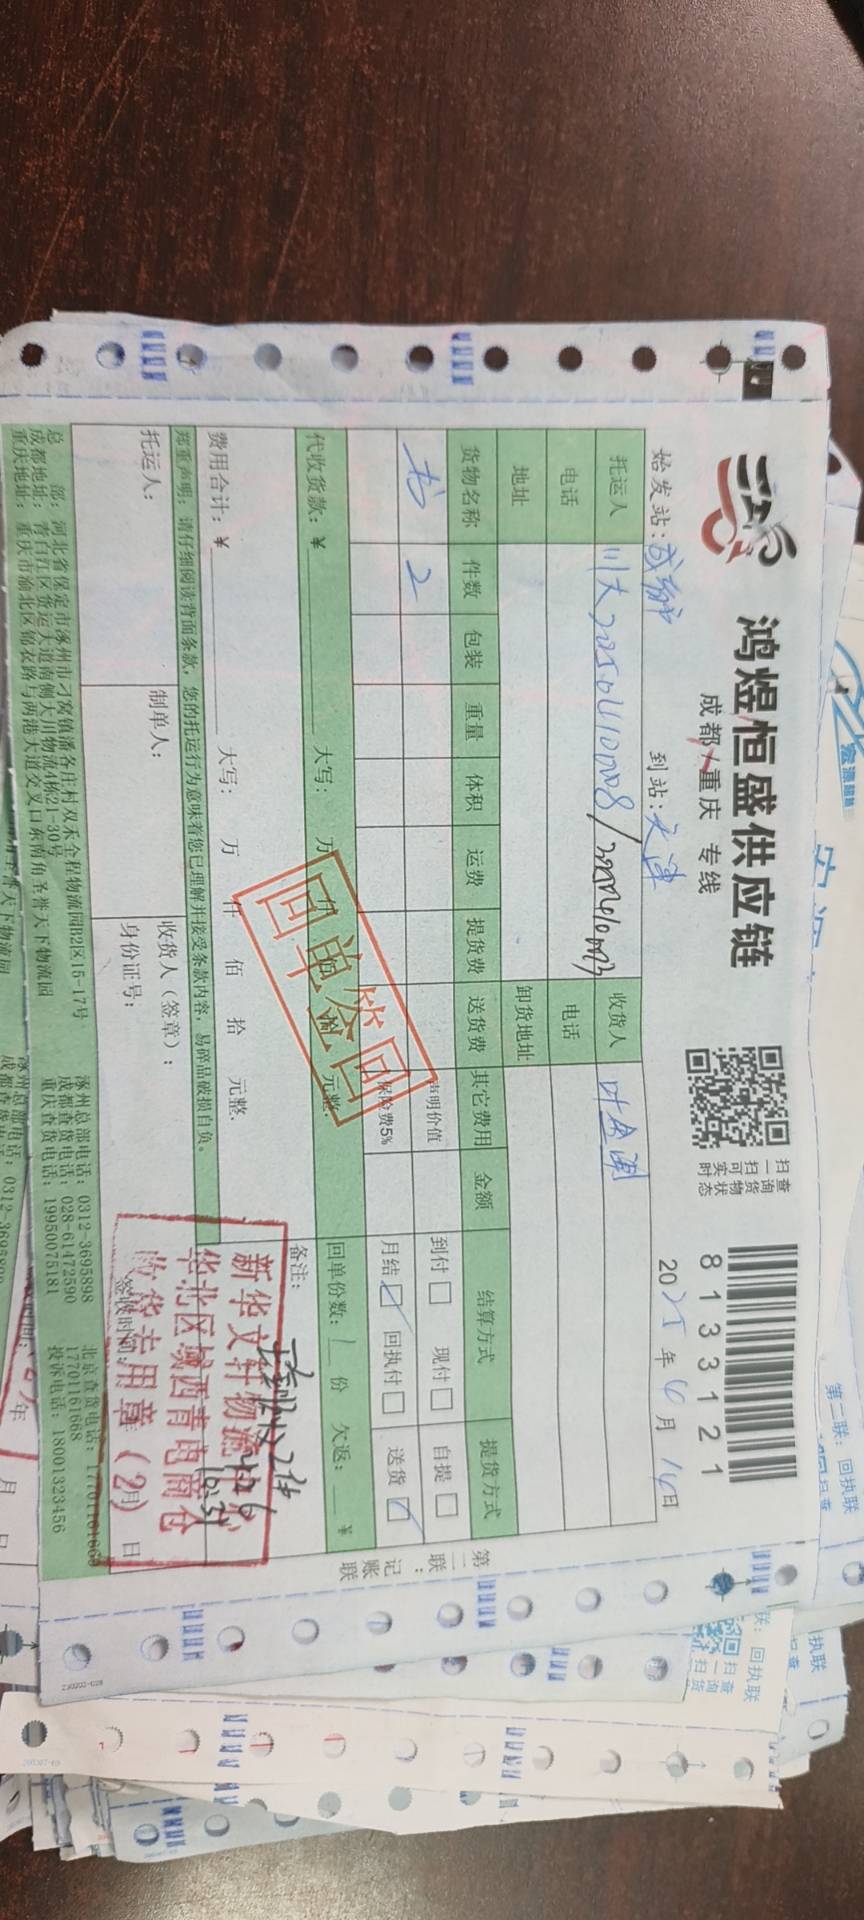 鸿煜恒盛供应链
成都/重庆 专线
扫查
一询
扫货
可物
实状
时态
8133121
始发站：成都
到站：天津
2025年4月14日
托运人 川大20250410008/ 收货人 叶金湖
电话 电话
地址 卸货地址
货物名称 件数 包装 重量 体积 运费 提货费 送货费 其它费用 金额 结算方式 提货方式
书 2 声明价值 到付□ 现付□ 自提□
保险费5% 月结☑ 回执付□ 送货☑
代收货款：￥ 大写： 万 仟 佰 拾 元整. 回单份数：1份 欠返： ￥
回单签回
费用合计：￥ 大写： 万 仟 佰 拾 元整. 备注：
郑重声明：请仔细阅读背面条款，您的托运行为意味着您已理解并接受条款内容，易碎品破损自负。
托运人： 制单人： 收货人（签章）：
身份证号： 签收时间： 月 日
2件
4.26
新华文轩物流
华北区域西青电商仓
收货专用章（2）
总 部：河北省保定市涿州市刁窝镇潘各庄村双禾全程物流园B2区15-17号 涿州总部电话：0312-3695898 北京查货电话：17701161668
成都地址：青白江区货运大道南侧大川物流4栋21-30号 成都查货电话：028-61472590 17701161668
重庆地址：重庆市渝北区锦衣路与两港大道交叉口东南角圣誉天下物流园 重庆查货电话：19950075181 投诉电话：18001323456
第二联：记账联
第二联：回执联